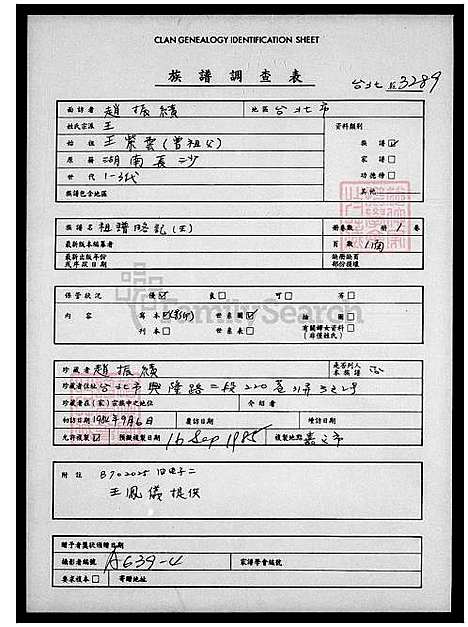 CLAN GENEALOGY IDENTIFICATION SHEET
族譜調查表
台北 3289
面訪者 趙振績 地區 台北市
姓氏宗派 王 資料類別
始祖 王紫雲(曾祖父) 族譜 ☑
原籍 湖南長沙 家譜 □
世代 1-3代 功德榜 □
族譜包含地區 其他
族譜名 祖譜略記(王) 冊卷數 冊 1 卷
最新版本編纂者 頁數 1面
最新出版年份 缺冊缺頁
或序跋日期 部份種境
保管狀況 優☑ 良□ 可□ 劣□
內容 寫本☑(影印) 世系圖☑ 插圖□
刊本□ 世系表□ 有關婦女資料□
(非僅姓氏)
FamilySearch
珍藏者 趙振績 是否列入本族譜 否
珍藏者住址 台北市興隆路二段220巷
珍藏者在(家)宗族中之地位 介紹者
初訪日期 1984年9月6日 覆訪日期 續訪日期
允許複製☑ 預擬複製日期 16 Sep 1985 複製地點 嘉之市
附註 B702025
王鳳儀提供
贈予者獎狀頒贈日期
攝影者編號 A639-4 家譜學會編號
要求複本□ 寄贈地址